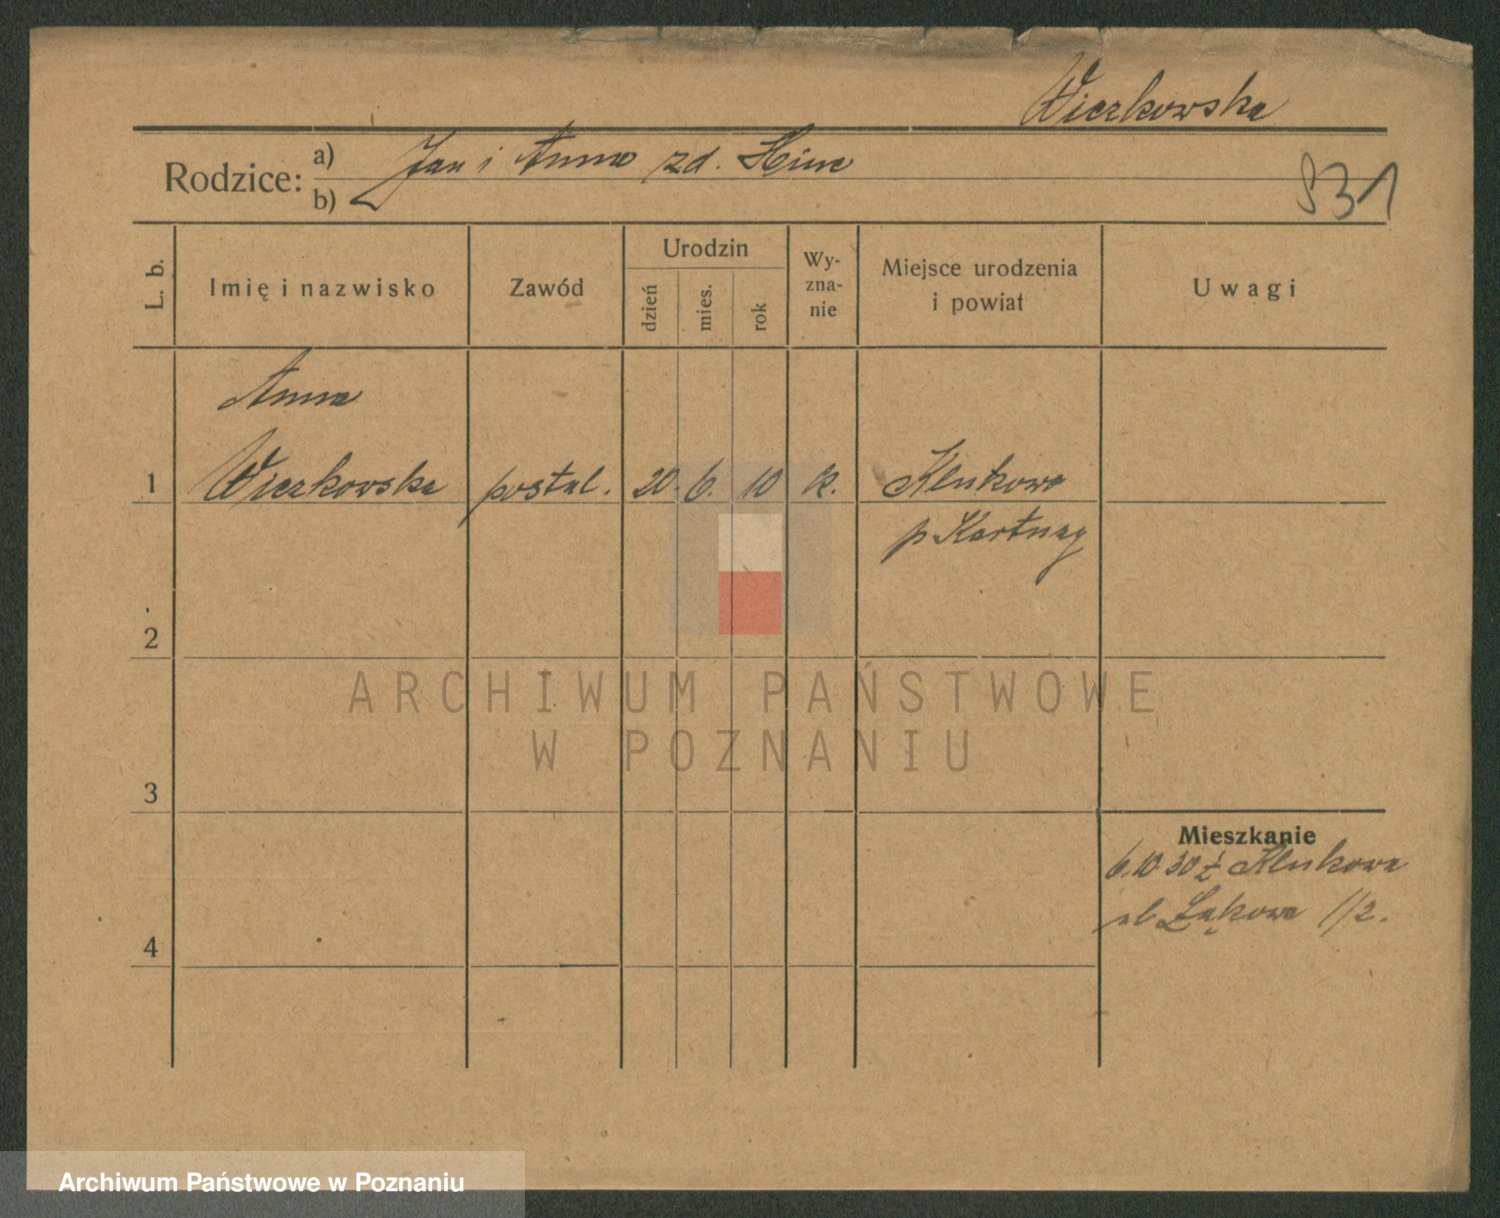 Wiczkowska
Rodzice: a) Jan i Anna zd. Hinc
b)
831
L. b.
Imię i nazwisko
Zawód
Urodzin
dzień
mies.
rok
Wy-
zna-
nie
Miejsce urodzenia
i powiat
Uwagi
Anna
1 Wiczkowska postul. 20. 6. 10 k. Klukowo
p Kartuzy
2
ARCHIWUM PAŃSTWOWE
W POZNANIU
3
Mieszkanie
6.10.30 z Klukowa
ul Łąkowa 1/2.
4
Archiwum Państwowe w Poznaniu